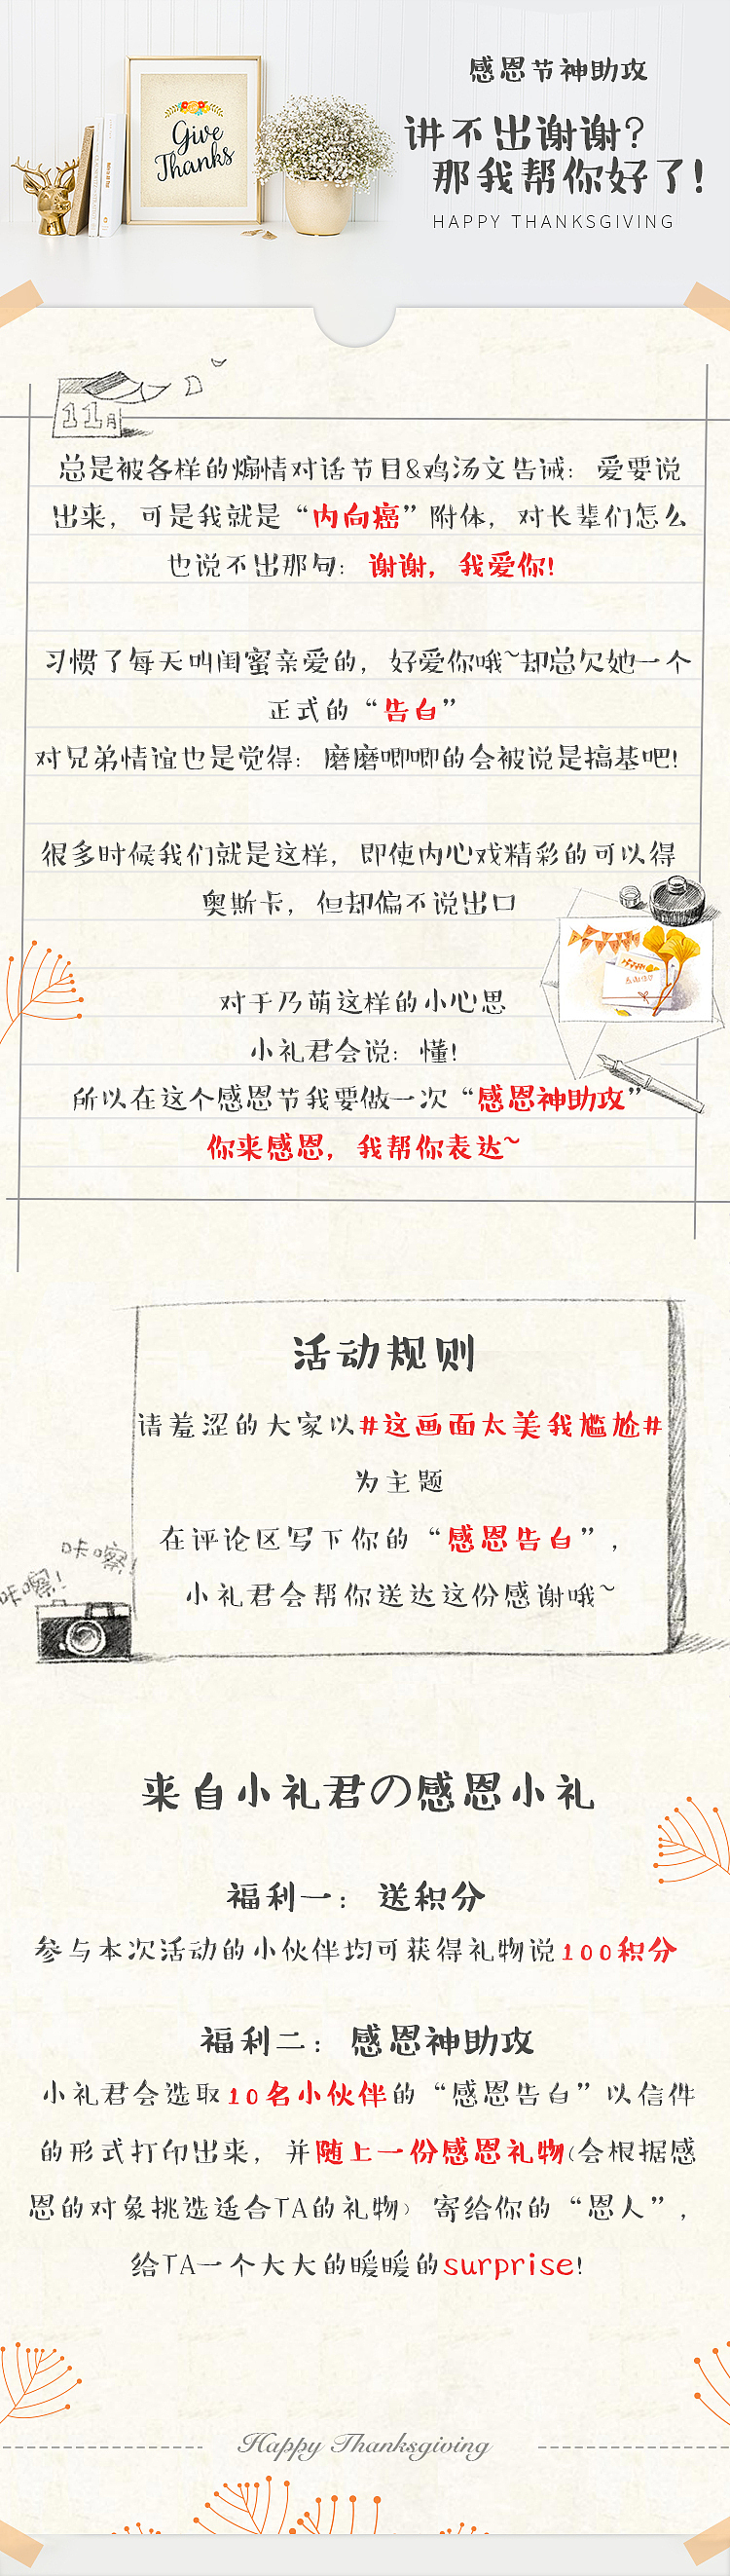 Give
Thanks
感恩节神助攻
讲不出谢谢?
那我帮你好了!
HAPPY THANKSGIVING
11月
总是被各样的煽情对话节目&鸡汤文告诫: 爱要说
出来, 可是我就是“内向癌”附体, 对长辈们怎么
也说不出那句: 谢谢, 我爱你!
习惯了每天叫闺蜜亲爱的, 好爱你哦~却总欠她一个
正式的“告白”
对兄弟情谊也是觉得: 磨磨唧唧的会被说是搞基吧!
很多时候我们就是这样, 即使内心戏精彩的可以得
奥斯卡, 但却偏不说出口
对于乃萌这样的小心思
小礼君会说: 懂!
所以在这个感恩节我要做一次“感恩神助攻”
你来感恩, 我帮你表达~
活动规则
请羞涩的大家以#这画面太美我尴尬#
为主题
在评论区写下你的“感恩告白”,
小礼君会帮你送达这份感谢哦~
咔嚓!
咔嚓!
来自小礼君の感恩小礼
福利一: 送积分
参与本次活动的小伙伴均可获得礼物说100积分
福利二: 感恩神助攻
小礼君会选取10名小伙伴的“感恩告白”以信件
的形式打印出来, 并随上一份感恩礼物(会根据感
恩的对象挑选适合TA的礼物) 寄给你的“恩人”,
给TA一个大大的暖暖的surprise!
Happy Thanksgiving